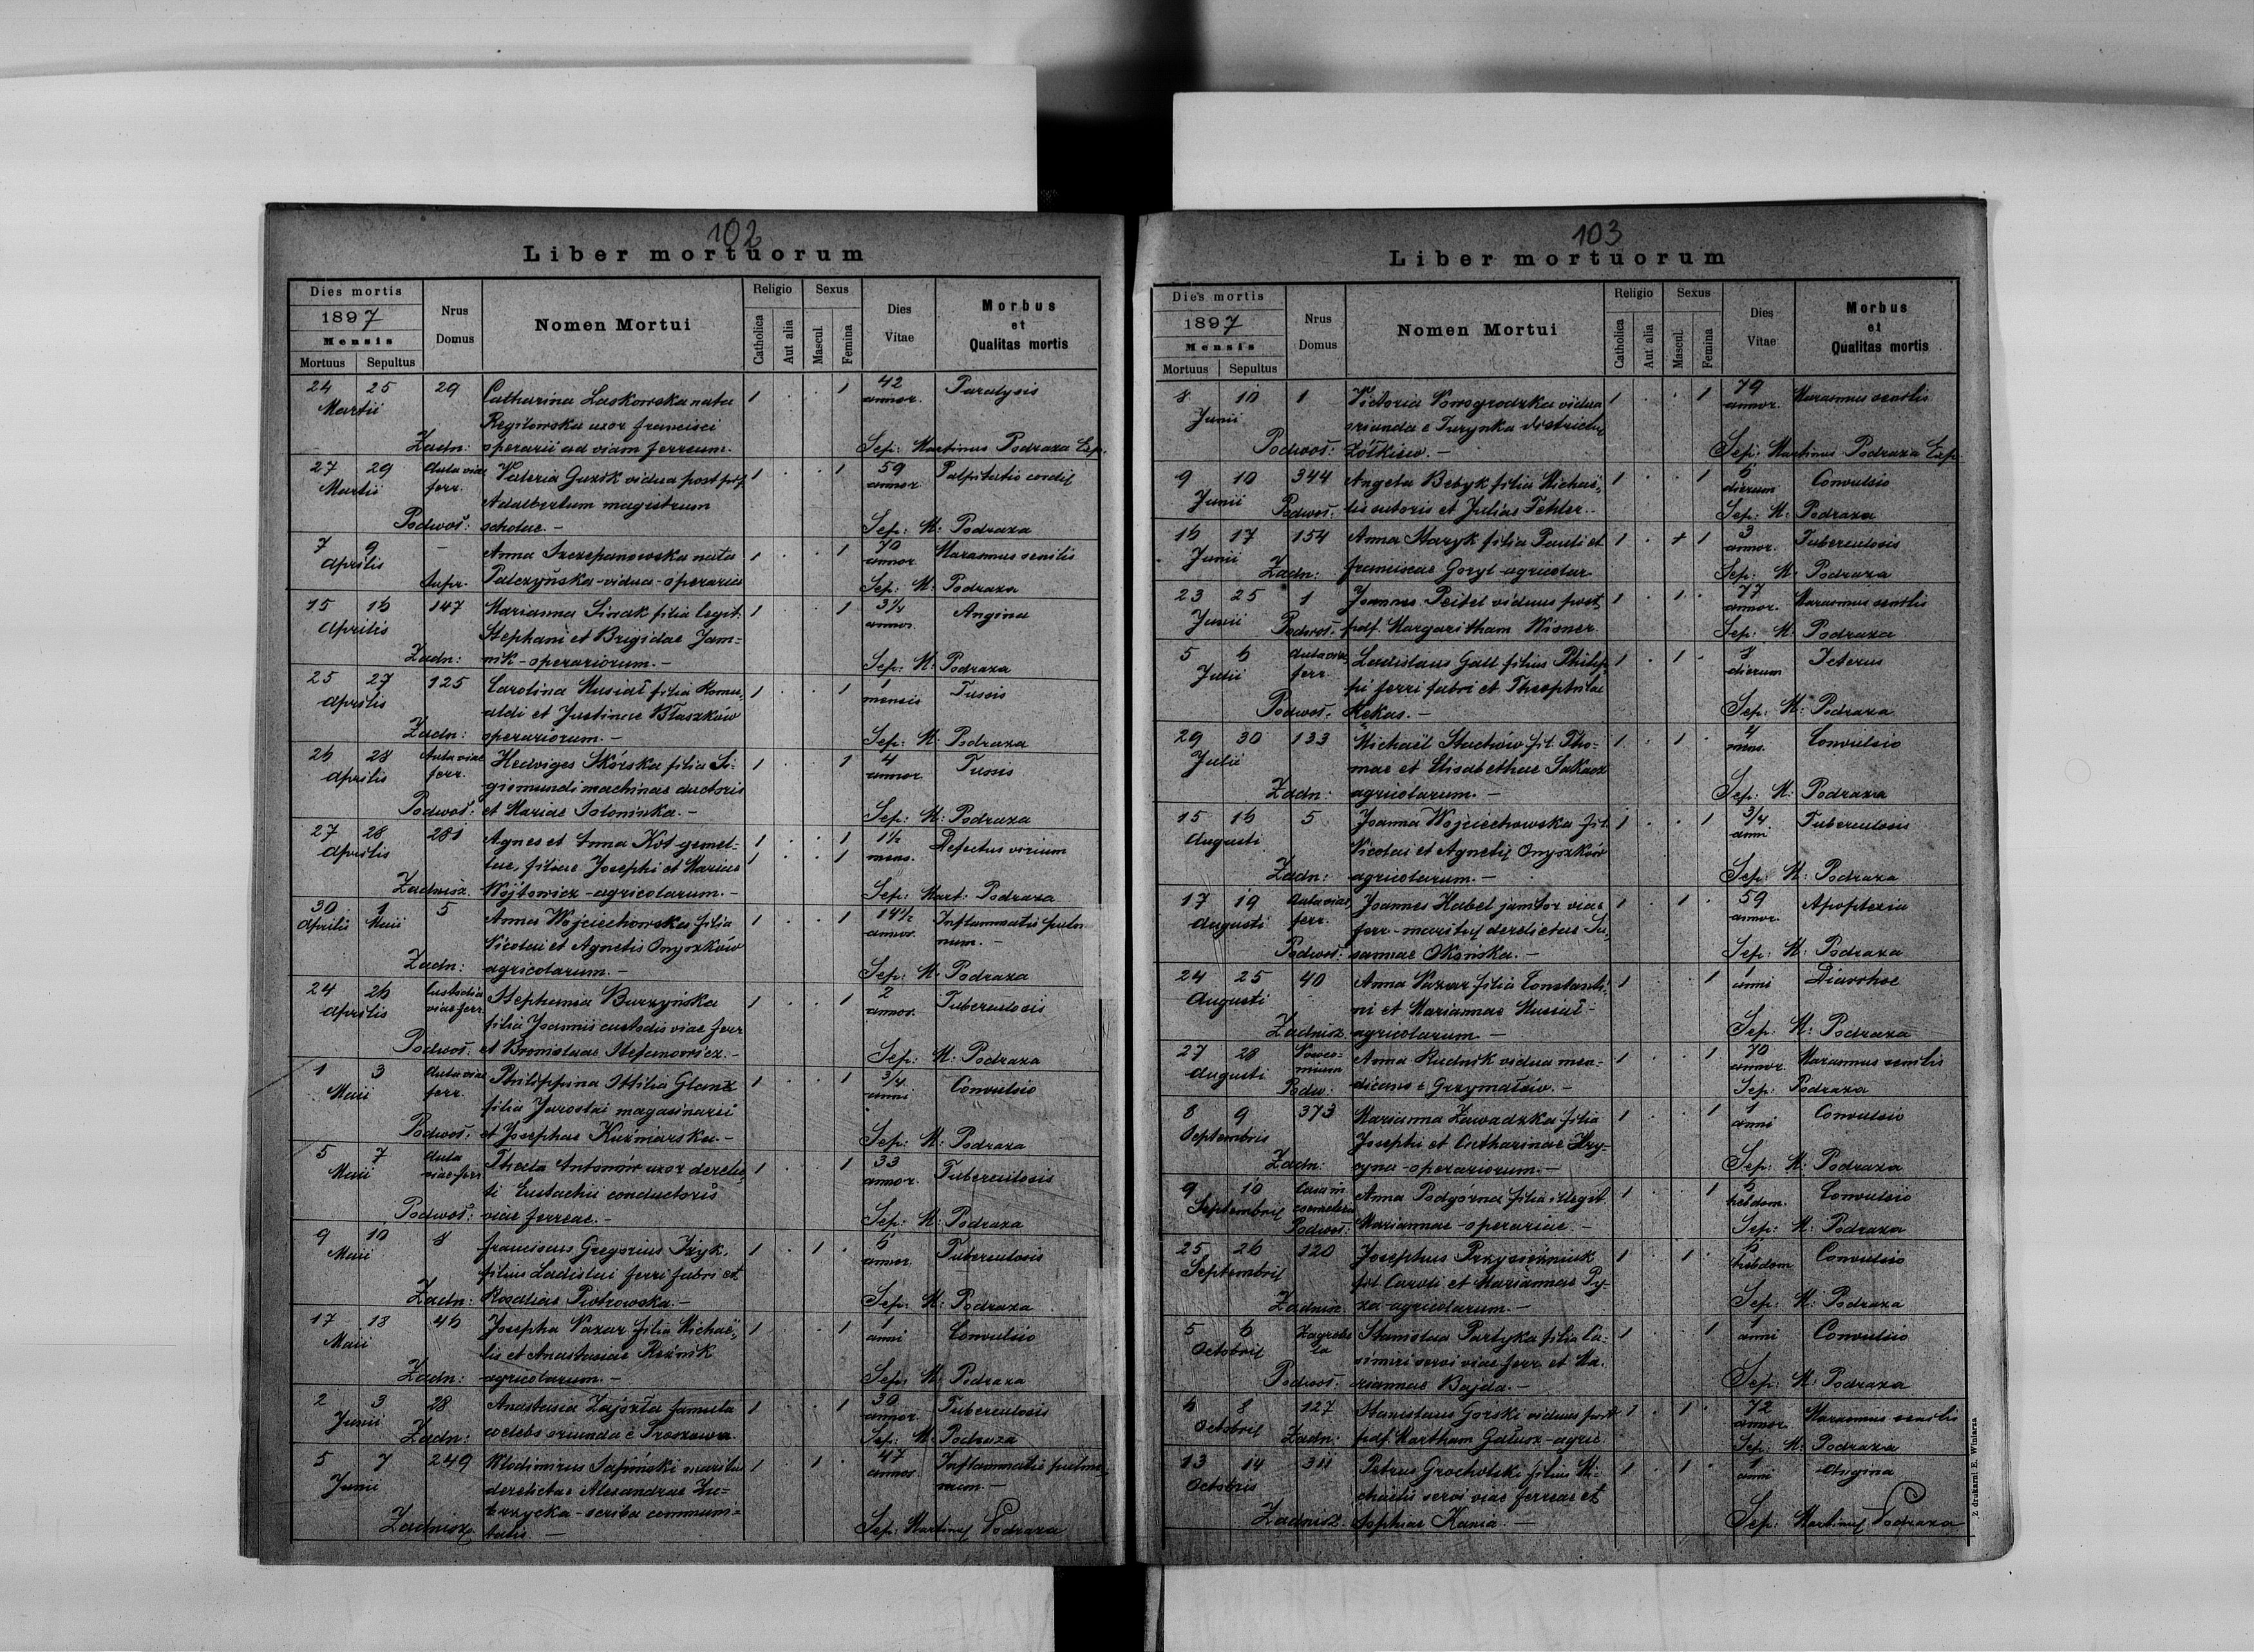 102
Liber mortuorum
Dies mortis
1897
Mensis
Mortuus Sepultus
Nrus Domus
Nomen Mortui
Religio
Catholica
Aut alia
Sexus
Mascul.
Femina
Dies Vitae
Morbus et Qualitas mortis
24 25 29 Catharina Laskowska nata 1 . . 1 42 Paralysis
Martii uxor Francisci annor.
Zadn: operarii ad viam ferream. Sep: Martinus Podraza Exp.
27 29 Aula viae Valeria Guzik vidua post pdf. 1 . . 1 59 Palpitatio cordis
Martii ferr. Adalbertum magistrum annor.
Podwoł: scholae. – Sep: M: Podraza
7 9 – Anna Szczepanowska nata 1 . . 1 70 Marasmus senilis
Aprilis Palczyńska - vidua - operaria annor.
Supr. Sep: M: Podraza
15 16 147 Marianna Sinak filia legit. 1 . . 1 3 1/4 Angina
Aprilis Stephani et Brigidae Jam= annor.
Zadn: nik - operariorum. – Sep: M: Podraza
25 27 125 Carolina Musiał filia Romu, 1 . . 1 1 Tussis
Aprilis aldi et Justinae Błaszków mensis
Zadn: operariorum. – Sep: M: Podraza
26 28 Aula viae Hedviges Skórska filia Si- 1 . . 1 4 Tussis
Aprilis ferr. gismundi machinae ductoris annor.
Podwoł: et Mariae Sołonińka. – Sep: M: Podraza
27 28 281 Agnes et Anna Kot - gemel- 1 . . 1 1 1/2 Defectus virium
Aprilis lae, filiae Josephi et Mariae 1 . . 1 mens.
Zadnisz. Wójtowicz - agricolarum. – Sep: Mart: Podraza
30 1 5 Anna Wojciechowska filia 1 . . 1 14 1/2 Inflammatio pulmo
Aprilis Maii Nicolai et Agnetis Onyszków annor. num. –
Zadn: agricolarum. – Sep: M: Podraza
24 26 Custodia Stephania Burzyńska 1 . . 1 2 Tuberculosis
Aprilis viae ferr. filia Joannis custodis viae ferr annor.
Podwoł: et Bronislaae Stefanowicz. – Sep: M: Podraza
1 3 Aula viae Philippina Ottilia Glanz 1 . . 1 3/4 Convulsio
Maii ferr. filia Jaroslai magasinarii anni
Podwoł: et Josephae Kuźniarska. – Sep: M: Podraza
5 7 Aula Thecla Antonów uxor derelic, 1 . . 1 33 Tuberculosis
Maii viae ferr ti Eustachii conductoris annor.
Podwoł: viae ferreae. – Sep: M: Podraza
9 10 8 Franciscus Gregorius Izyk, 1 . 1 . 6 Tuberculosis
Maii filius Ladislai ferri fabri et annor.
Zadn: Rosaliae Piotrowska. – Sep: M: Podraza
17 18 46 Josepha Nazar filia Michaë, 1 . . 1 1 Convulsio
Maii lis et Anastasiae Reźnik anni
Zadn: agricolarum. – Sep: M: Podraza
2 3 28 Anastasia Zajózła famula 1 . . 1 30 Tuberculosis
Junii coelebs oriunda è annor.
Zadn: Sep: M: Podraza
5 7 249 Wlodimirus Sapiński maritus 1 . 1 . 47 Inflammatio pulmo,
Junii derelictae Alexandrae Zu= annor. num. –
brzycka - scriba communi=
Zadnisz. tatis – Sep: Martinus Podraza
103
Liber mortuorum
Dies mortis
1897
Mensis
Mortuus Sepultus
Nrus Domus
Nomen Mortui
Religio
Catholica
Aut alia
Sexus
Mascul.
Femina
Dies Vitae
Morbus et Qualitas mortis
8 10 1 Victoria Nowogrodzka vidua 1 . . 1 79 Marasmus senilis
Junii oriunda è Turynka districtus annor.
Podwoł: Żółkiew. – Sep: Martinus Podraza Exp.
9 10 344 Angela Bebyk filia Michaë, 1 . . 1 6 Convulsio
Junii lis sutoris et Julias Fehler. dierum
Podwoł: Sep: M: Podraza
16 17 154 Anna Mazyk filia Pauli et 1 . + 1 3 Tuberculosis
Junii Franciscae Goryl - agricolar annor.
Zadn: Sep: M: Podraza
23 25 1 Joannes Peitel viduus post 1 . 1 . 77 Marasmus senilis
Junii pdf. Margaritham Wisner. annor.
Podwoł. Sep: M: Podraza
5 6 Aula viae Ladislaus Gall filius Philip, 1 . 1 . 8 Icterus
Julii ferr. pi ferri fabri et Theophilae dierum
Podwoł. Kekas. – Sep: M: Podraza
29 30 133 Michaël Stachów fil. Tho- 1 . 1 . 4 Convulsio
Julii mae et Elisabethae Sakacz mens.
Zadn: agricolarum. – Sep: M: Podraza
15 16 5 Joanna Wojciechowska fil. 1 . . 1 3/4 Tuberculosis
Augusti Nicolai et Agnetis Onyszków anni
Zadn: agricolarum. – Sep: M: Podraza
17 19 Aula viae, Joannes Habel janitor viae 1 . 1 . 59 Apoplexia
Augusti ferr. ferr - maritus derelictae Su, annor.
Podwoł: sannae Okońska. – Sep: M: Podraza
24 25 40 Anna Nazar filia Constanti, 1 . . 1 1 Diarrhoe
Augusti ni et Mariannae Musiał - anni
Zadnisz. agricolarum – Sep: M: Podraza
27 28 Anna Rudnik vidua men- 1 . . 1 70 Marasmus senilis
Augusti dicans è Grzymałów. – annor.
Podw. Sep: Podraza
8 9 373 Marianna Zawadzka filia 1 . . 1 1 Convulsio
Septembris Josephi et Catharinae Hry- anni
Zadn: cyna - operariorum. – Sep: M: Podraza
9 10 Casa in Anna Podgórna filia illegit. 1 . . 1 6 Convulsio
Septembris coemeterio Mariannae - operariae. – hebdom.
Podwoł: Sep: M: Podraza
25 26 120 Josephus Przysiężniuk 1 . 1 . 6 Convulsio
Septembris fil. Caroli et Mariannae Py- hebdom
Zadnisz. za - agricolarum. – Sep: M: Podraza
5 6 Zagrobe Stanislaa Partyka filia Ca= 1 . . 1 1 Convulsio
Octobris la simiri servi viae ferr et Ma. anni
Podwoł: riannae Bajda. – Sep: M: Podraza
6 8 127 Stanislaus Gorski viduus post 1 . 1 . 72 Marasmus senilis
Octobris pdf. Martham Gałusz - agric. annor.
Zadn: Sep: M: Podraza
13 14 311 Petrus Grocholski filius Mi= 1 . 1 . 1 Angina
Octobris chaelis servi viae ferreae et anni
Zadnisz. Sophiae Kania. – Sep: Martinus Podraza
Z drukarni E. Winiarza